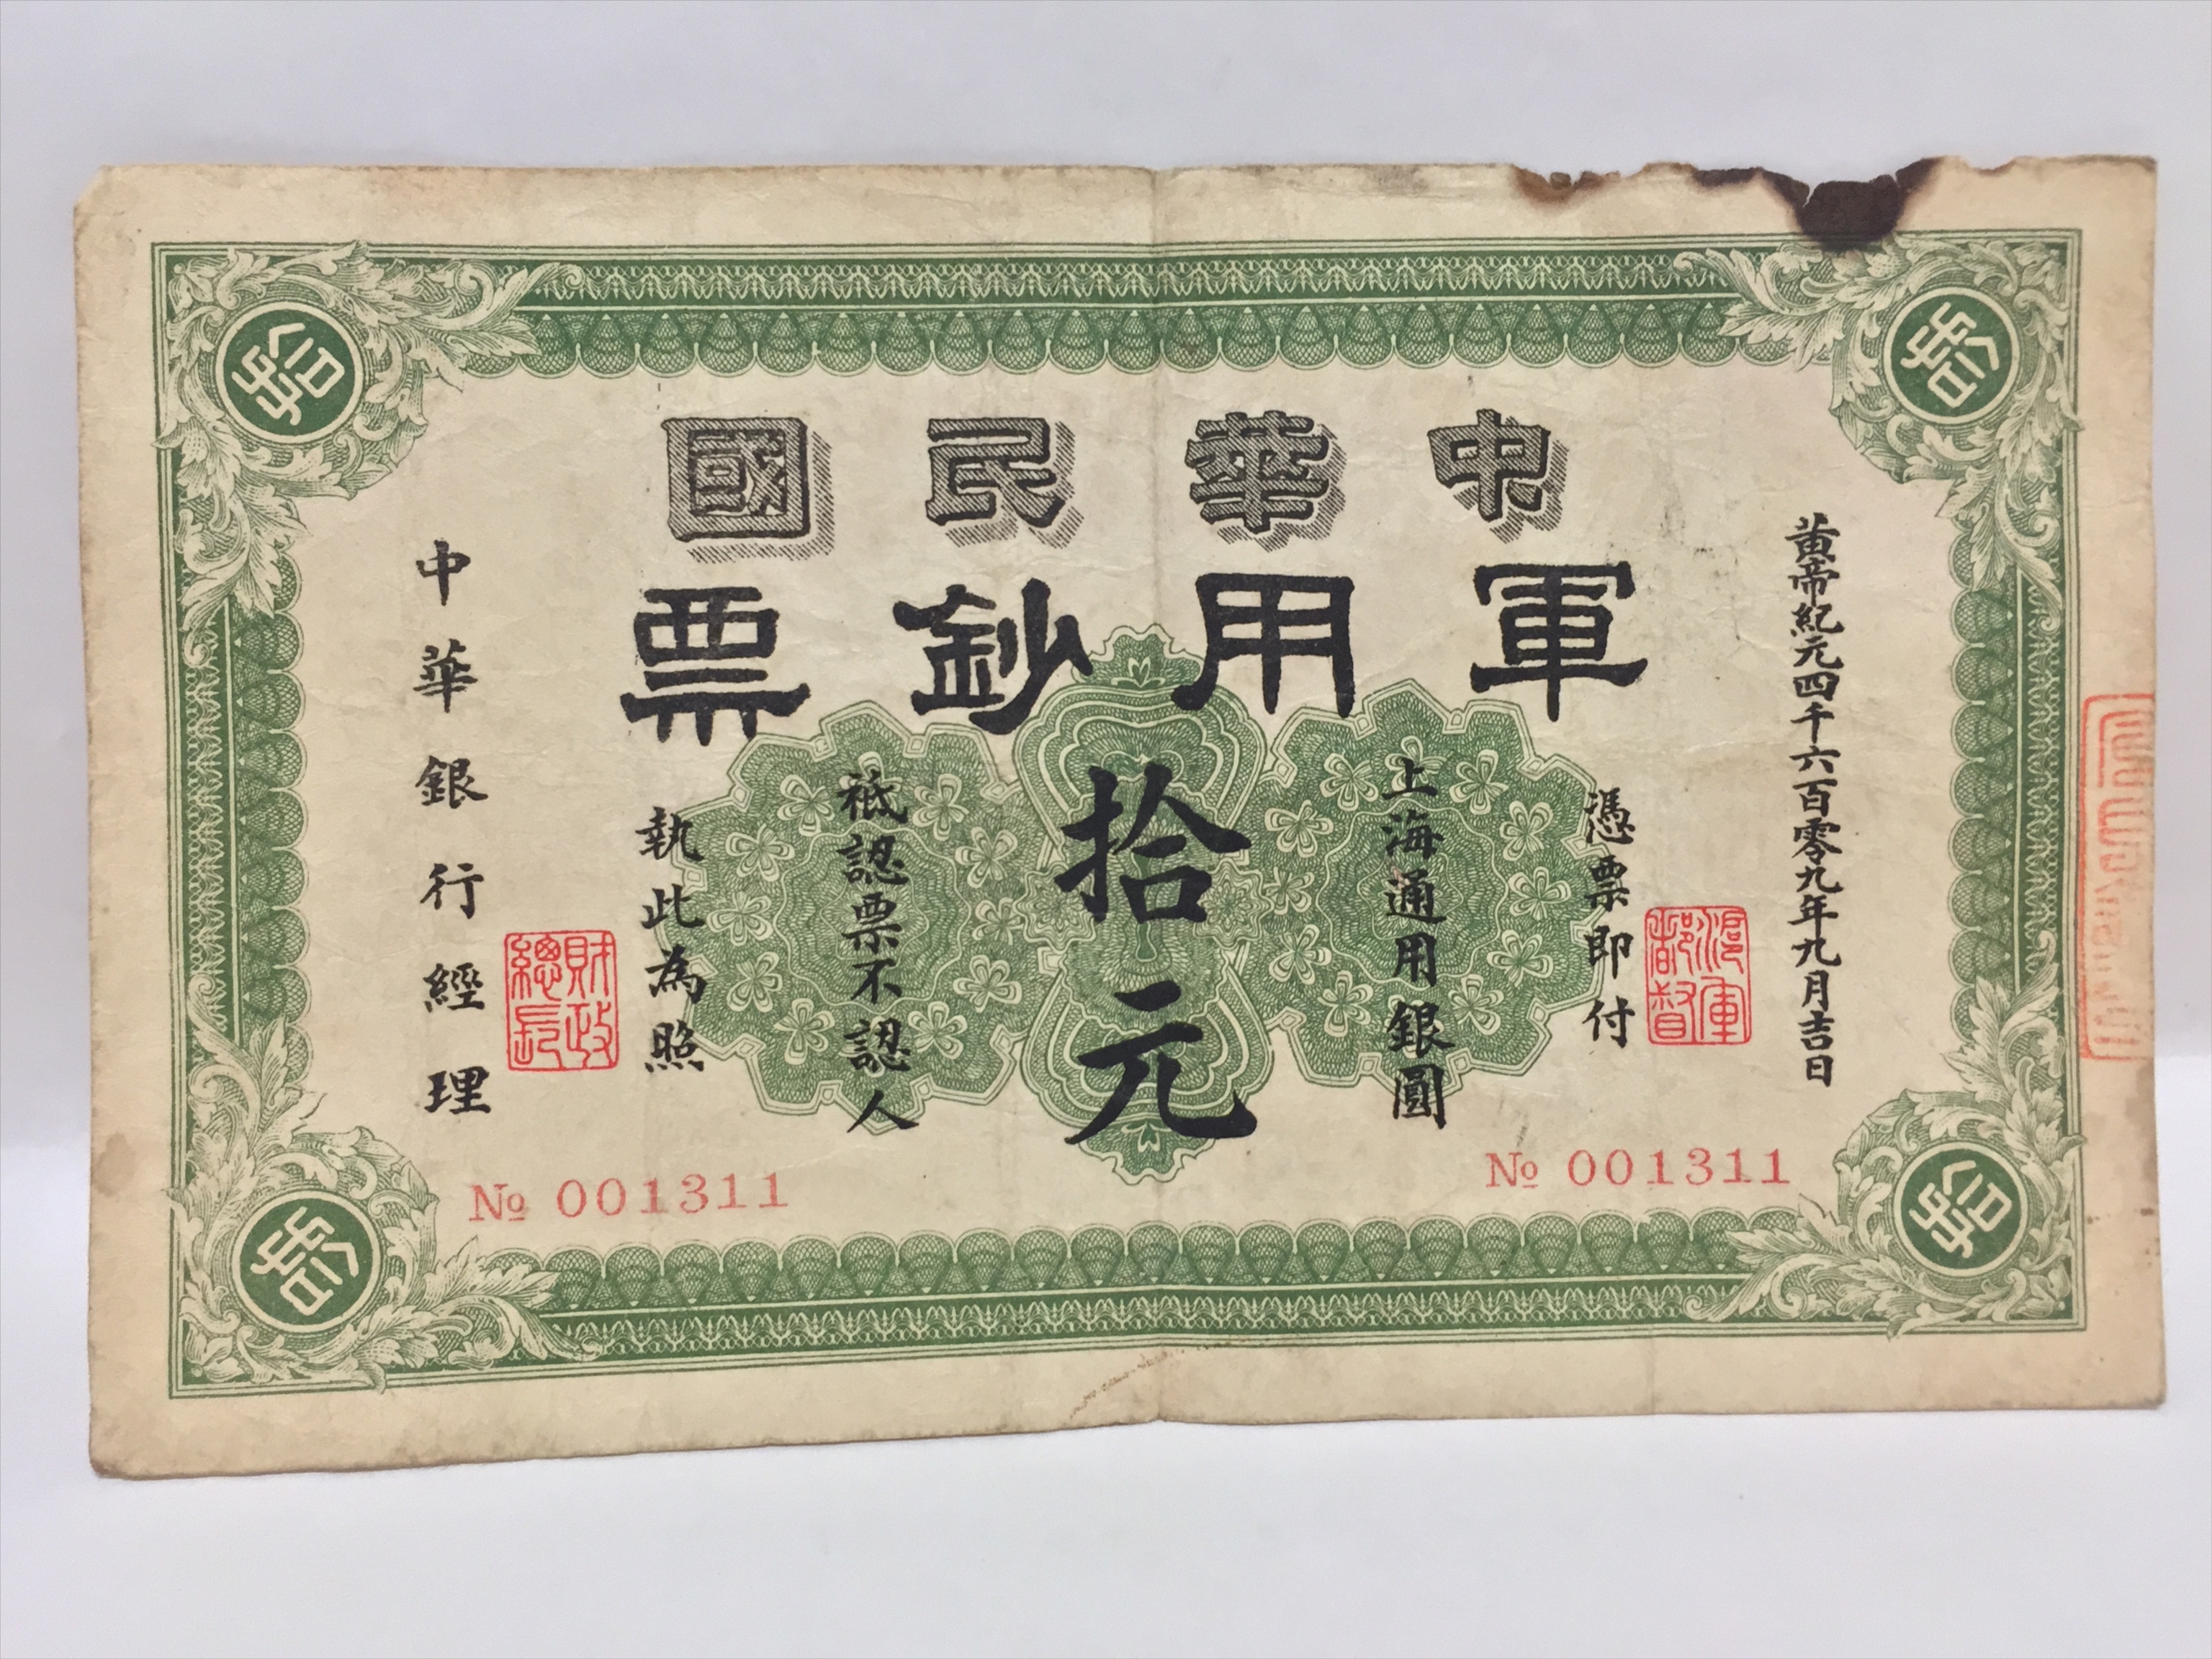 中華民國
軍用鈔票
黃帝紀元四千六百零九年九月吉日
滬軍都督
憑票即付
上海通用銀圓
拾元
祗認票不認人
執此為照
財政總長
中華銀行經理
№ 001311
№ 001311
拾
拾
拾
拾